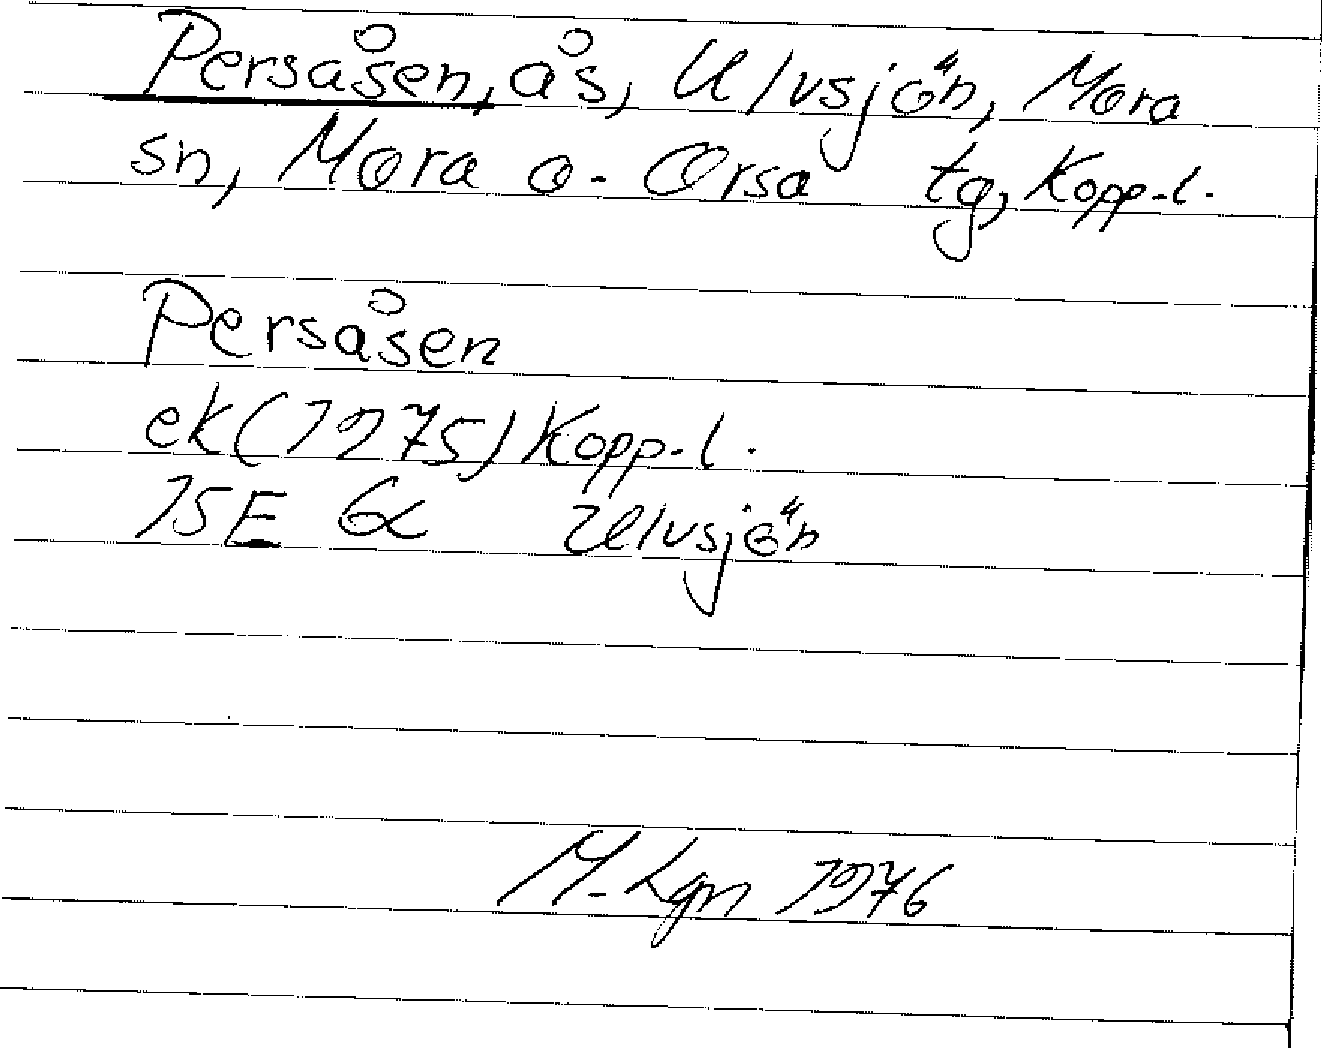 Persåsen, ås, Ulvsjön, Mora
sn, Mora o. Orsa tg, Kopp.l.
Persåsen
ek (1975) Kopp.l.
15E 6c Ulvsjön
M. Lgn 1976